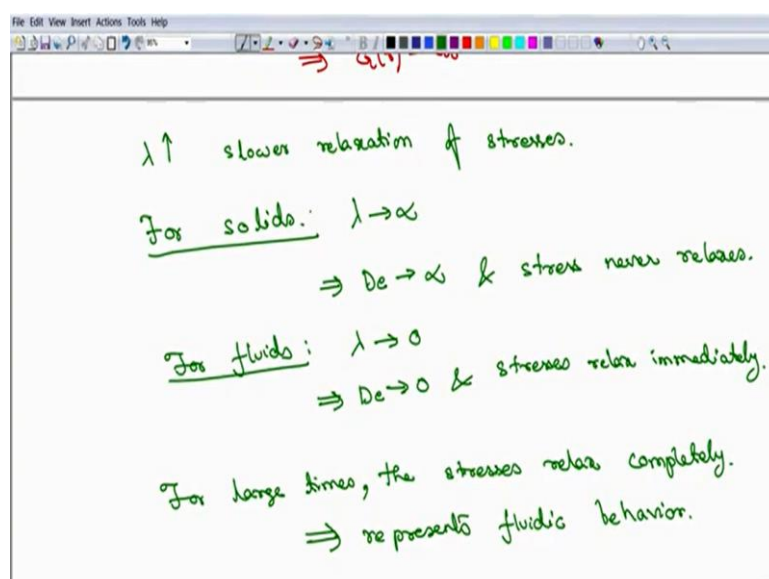 File Edit View Insert Actions Tools Help
B I
λ↑ slower relaxation of stresses.
For solids: λ→∝
⇒ De→∝ & stress never relaxes.
For fluids: λ→0
⇒ De→0 & stresses relax immediately.
For large times, the stresses relax completely.
⇒ represents fluidic behavior.